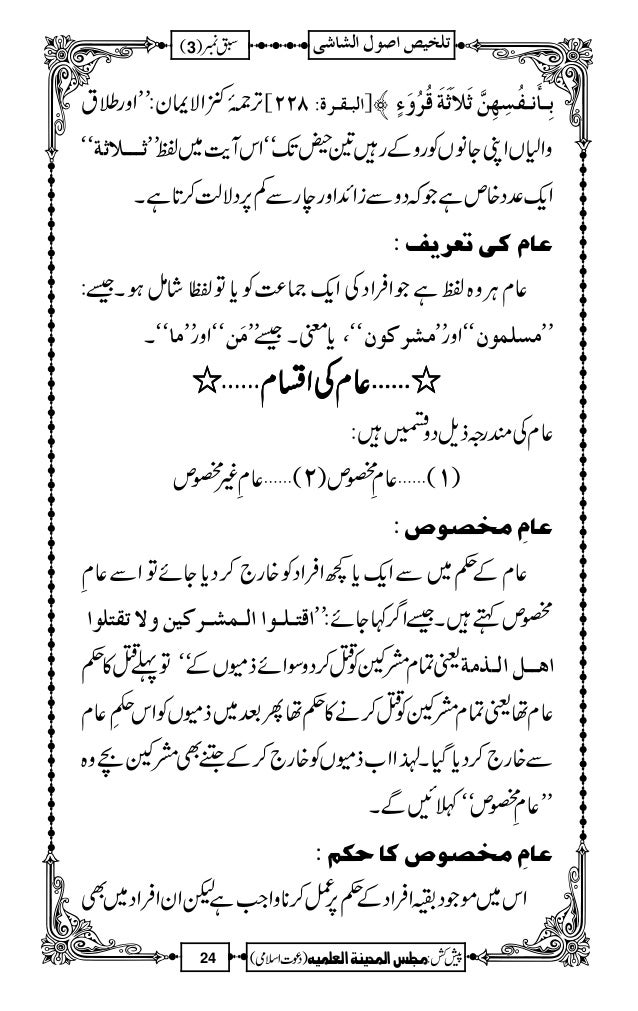 تلخیص اصول الشاشی سبق نمبر (3)
بِأَنفُسِهِنَّ ثَلاَثَةَ قُرُوَءٍ ﴾[البقرۃ: ۲۲۸] ترجمۂ کنز الایمان: ’’اور طلاق
والیاں اپنی جانوں کو روکے رہیں تین حیض تک‘‘ اس آیت میں لفظ ’’ثلاثة‘‘
ایک عدد خاص ہے جو کہ دو سے زائد اور چار سے کم پر دلالت کرتا ہے۔
عام کی تعریف :
عام ہر وہ لفظ ہے جو افراد کی ایک جماعت کو یا تو لفظا شامل ہو ۔جیسے:
’’مسلمون‘‘ اور ’’مشرکون‘‘، یا معنی۔ جیسے ’’مَن‘‘ اور ’’ما‘‘۔
☆......عام کی اقسام......☆
عام کی مندرجہ ذیل دو قسمیں ہیں:
(۱)......عامِ مخصوص (۲)......عامِ غیر مخصوص
عامِ مخصوص :
عام کے حکم میں سے ایک یا کچھ افراد کو خارج کر دیا جائے تو اسے عامِ
مخصوص کہتے ہیں۔ جیسے اگر کہا جائے: ’’اقتلوا المشرکین ولا تقتلوا
اهل الذمة یعنی تمام مشرکین کو قتل کر دو سوائے ذمیوں کے‘‘ تو پہلے قتل کا حکم
عام تھا یعنی تمام مشرکین کو قتل کرنے کا حکم تھا پھر بعد میں ذمیوں کو اس حکمِ عام
سے خارج کر دیا گیا۔ لہذا اب ذمیوں کو خارج کر کے جتنے بھی مشرکین بچے وہ
’’عامِ مخصوص‘‘ کہلائیں گے۔
عامِ مخصوص کا حکم :
اس میں موجود بقیہ افراد کے حکم پر عمل کرنا واجب ہے لیکن ان افراد میں بھی
پیش کش: مجلس المدینة العلمیه (دعوت اسلامی) 24